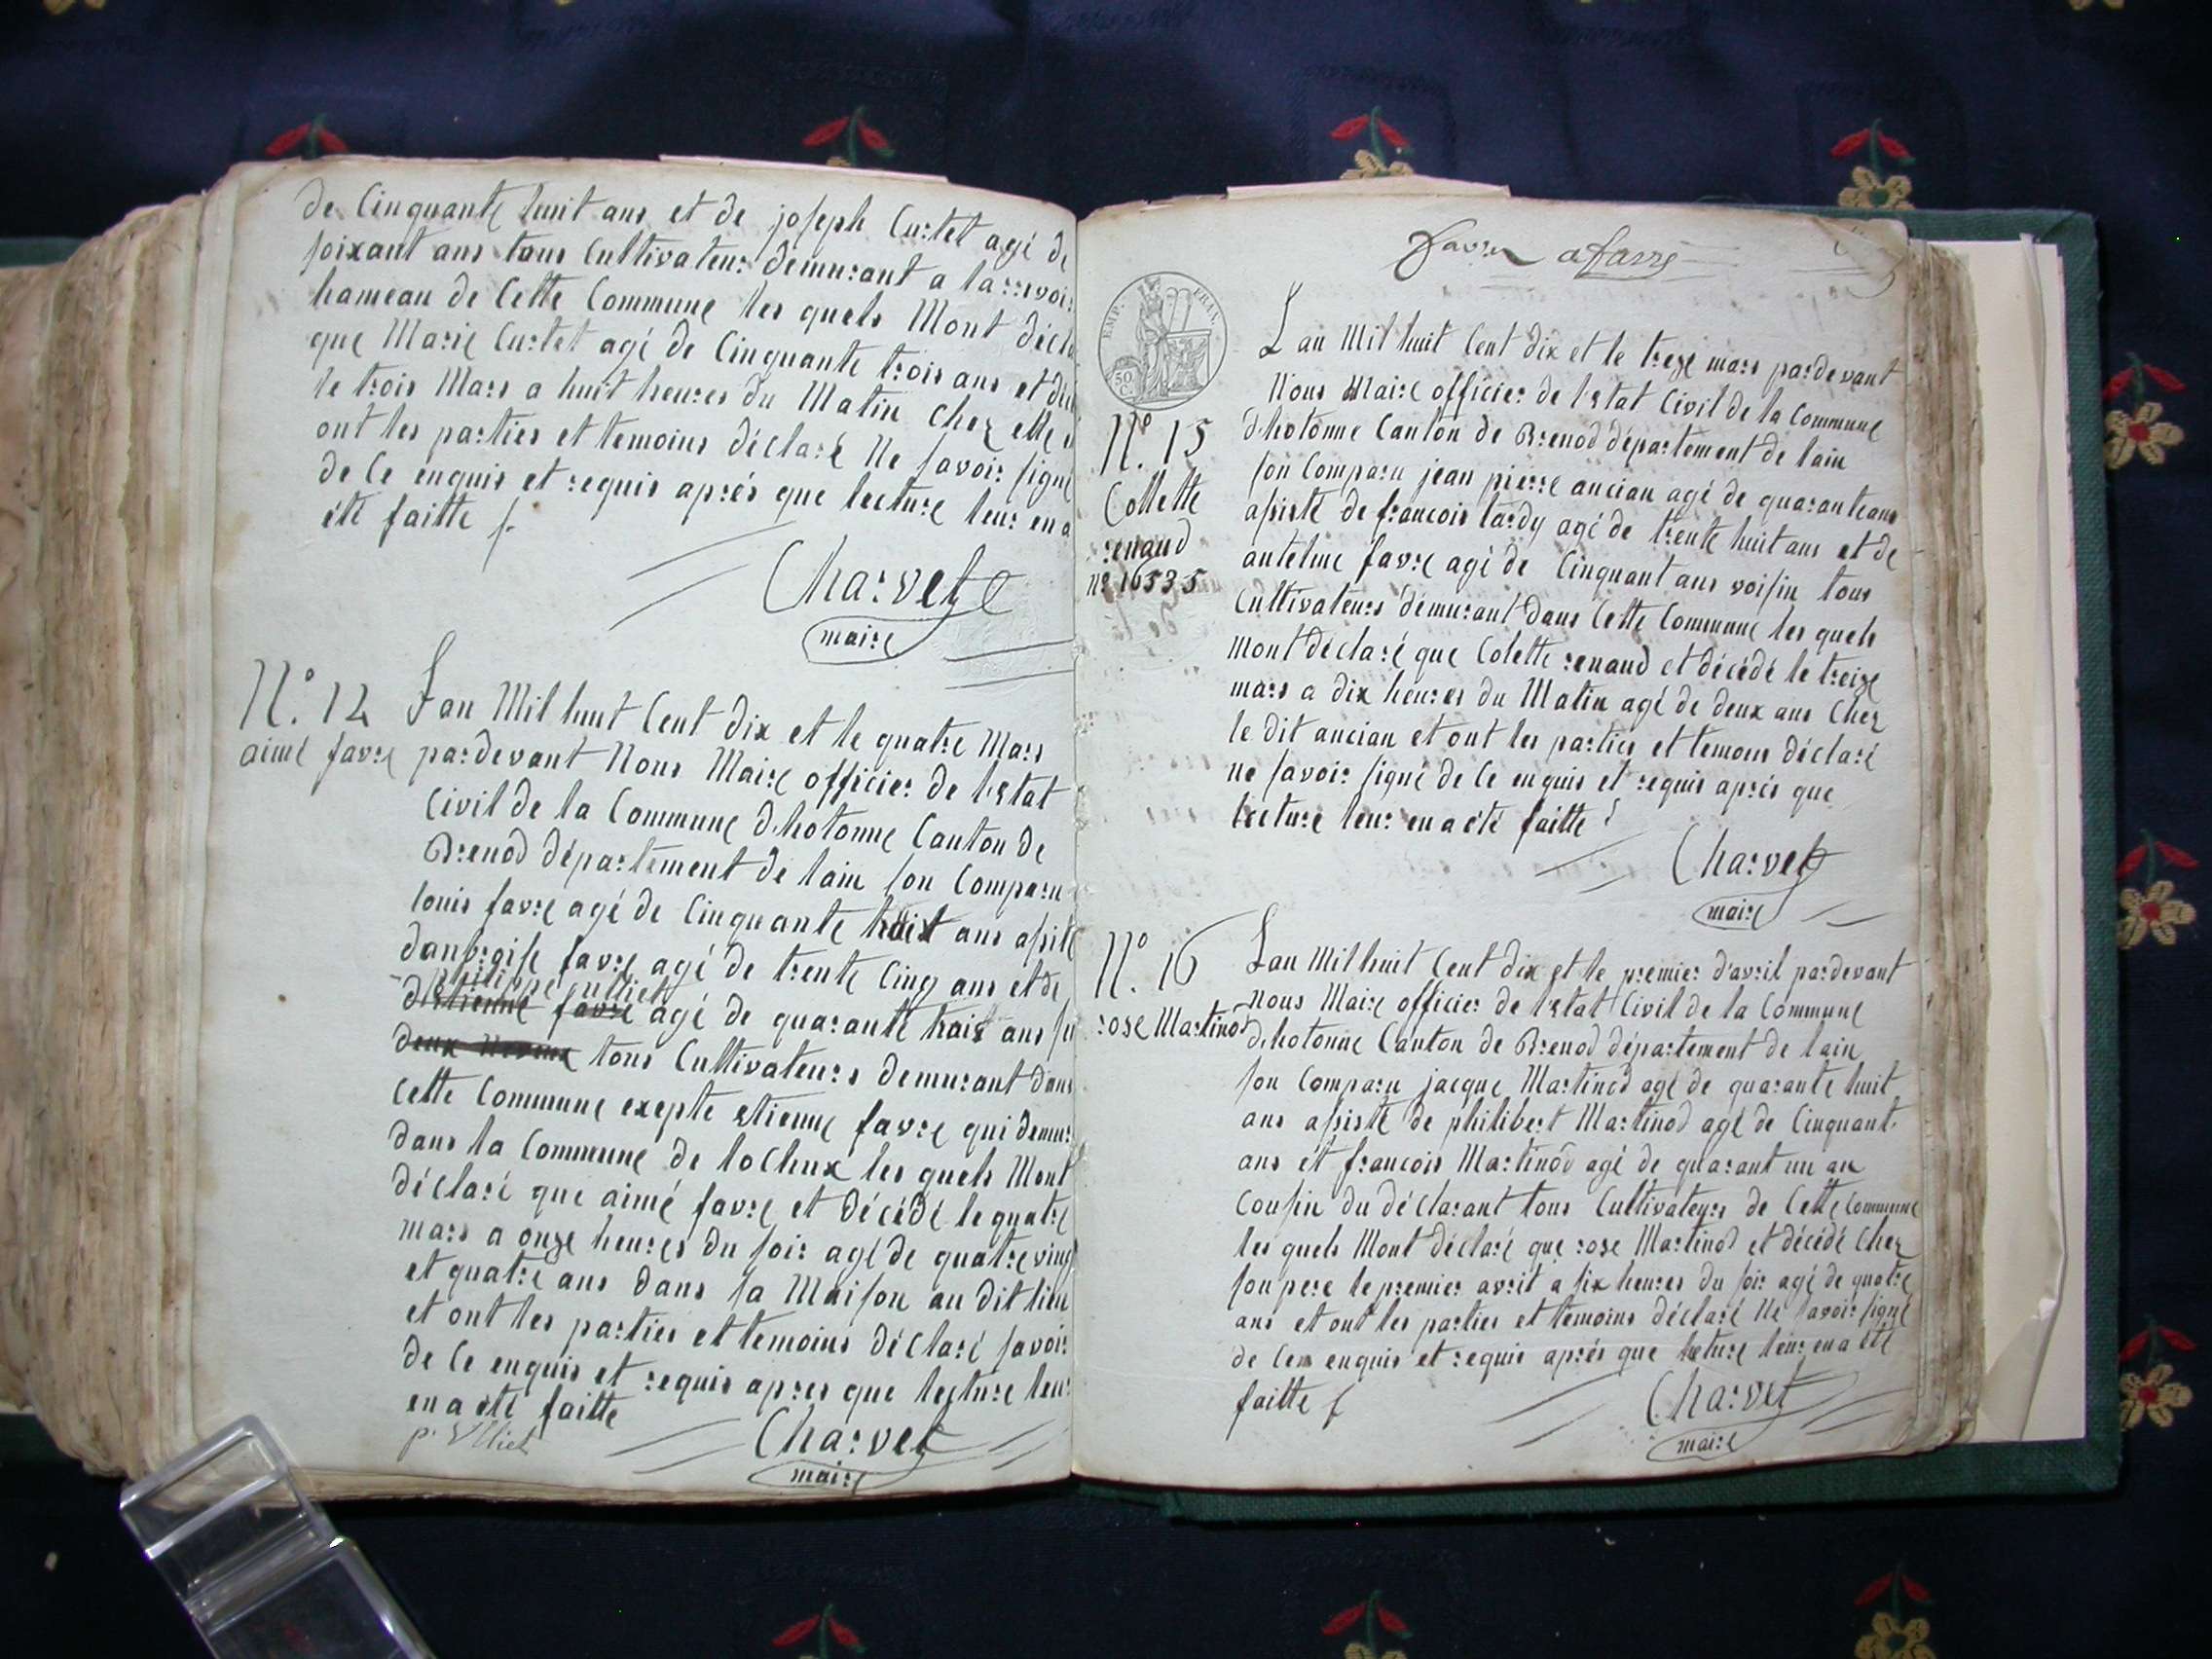 de Cinquante huit ans et de joseph Curtet agé de
soixant ans tous Cultivateur demurant a larrevoir
hameau de Cette Commune les quels Mont décla
que Marie Curtet agé de Cinquante trois ans et déc
le trois Mars a huit heures du Matin Chez elle e
ont les parties et temoins déclaré Ne savoir signé
de Ce enquis et requis aprés que lecture leur en a
été faitte
Charvet
maire
N.° 12
aimé favre
Lan Mil huit Cent dix et le quatre Mars
pardevant Nous Maire officier de lEstat
Civil de la Commune d.hotonne Canton de
Brenod département de lain son Comparu
louis favre agé de Cinquante huit ans asisté
danbroise favre agé de trente Cinq ans et de
philippe ulliet
dEtienne favre agé de quarante trois ans
deux neveux tous Cultivateurs demurant dans
Cette Commune exepte etienne favre qui demur
dans la Commune de lochux les quels Mont
déclaré que aimé favre et décédé le quatre
mars a onze heures du soir agé de quatre ving
et quatre ans dans sa Maison au dit lieu
et ont les parties et temoins déclaré savoir
de Ce enquis et requis apres que lecture leur
en a eté faitte
p. Ulliet
Charvet
maire
favre a favre
EMP. FRAN.
50 C.
N.° 15
Collette
renaud
n° 16535
Lan Mil huit Cent dix et le treze mars pardevant
Nous Maire officier de lEstat Civil de la Commune
d.hotonne Canton de Brenod département de lain
son Comparu jean pierre ancian agé de quaranteans
asisté de francois tardy agé de trente huit ans et de
antelme favre agé de Cinquant ans voisin tous
Cultivateurs demurant dans Cette Commune les quels
Mont déclaré que Colette renaud et décédé le treize
mars a dix heures du Matin agé de deux ans Chez
le dit ancian et ont les parties et temoins déclaré
ne savoir signé de Ce enquis et requis aprés que
lecture leur en a été faitte
Charvet
maire
N.° 16
rose Martinod
Lan Mil huit Cent dix et le premier d'avril pardevant
nous Maire officier de lEstat Civil de la Commune
d.hotonne Canton de Brenod département de lain
son Comparu jacque Martinod agé de quarante huit
ans asisté de philibert Martinod agé de Cinquant
ans et francois Martinod agé de quarant un an
Cousin du déclarant tous Cultivateurs de Cette Commune
les quels Mont déclaré que rose Martinod et décédé Chez
son pere le premier avril a six heures du soir agé de quatre
ans et ont les parties et temoins déclaré Ne savoir signé
de Cem enquis et requis aprés que lecture leur en a été
faitte
Charvet
maire